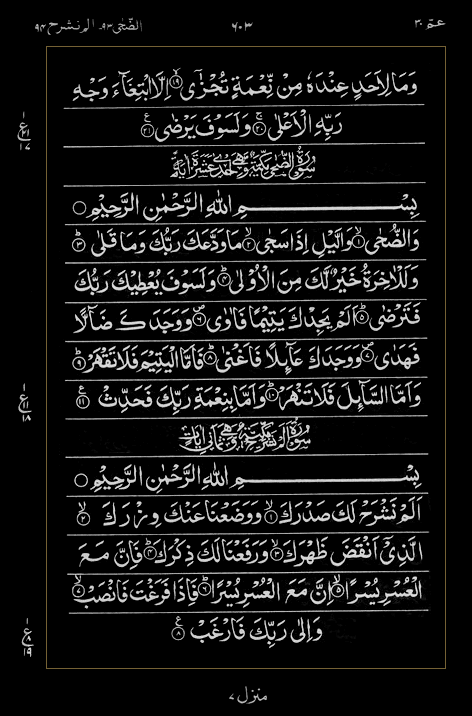 عمّ ٣٠ ٦٠٣ الضّحى ٩٣ الم نشرح ٩٤
وَمَا لِاَحَدٍ عِنْدَهٗ مِنْ نِّعْمَةٍ تُجْزٰٓى ۙ﴿١٩﴾ اِلَّا ابْتِغَآءَ وَجْهِ
رَبِّهِ الْاَعْلٰى ۚ﴿٢٠﴾ وَلَسَوْفَ يَرْضٰى ﴿٢١﴾ ع
ع ١ ٢١ ١٧
سُوْرَةُ الضُّحٰى مَكِّيَّةٌ وَّهِىَ اِحْدٰى عَشْرَةَ اٰيَةً
بِسْمِ اللّٰهِ الرَّحْمٰنِ الرَّحِيْمِ
وَالضُّحٰى ۙ﴿١﴾ وَالَّيْلِ اِذَا سَجٰى ۙ﴿٢﴾ مَا وَدَّعَكَ رَبُّكَ وَمَا قَلٰى ﴿٣﴾
وَلَلْاٰخِرَةُ خَيْرٌ لَّكَ مِنَ الْاُوْلٰى ﴿٤﴾ وَلَسَوْفَ يُعْطِيْكَ رَبُّكَ
فَتَرْضٰى ﴿٥﴾ اَلَمْ يَجِدْكَ يَتِيْمًا فَاٰوٰى ۪﴿٦﴾ وَوَجَدَكَ ضَآلًّا
فَهَدٰى ۪﴿٧﴾ وَوَجَدَكَ عَآئِلًا فَاَغْنٰى ﴿٨﴾ فَاَمَّا الْيَتِيْمَ فَلَا تَقْهَرْ ﴿٩﴾
وَاَمَّا السَّآئِلَ فَلَا تَنْهَرْ ﴿١٠﴾ وَاَمَّا بِنِعْمَةِ رَبِّكَ فَحَدِّثْ ﴿١١﴾ ع
ع ١ ١١ ١٨
سُوْرَةُ اَلَمْ نَشْرَحْ مَكِّيَّةٌ وَّهِىَ ثَمَانِىْ اٰيَاتٍ
بِسْمِ اللّٰهِ الرَّحْمٰنِ الرَّحِيْمِ
اَلَمْ نَشْرَحْ لَكَ صَدْرَكَ ۙ﴿١﴾ وَوَضَعْنَا عَنْكَ وِزْرَكَ ۙ﴿٢﴾
الَّذِىْٓ اَنْقَضَ ظَهْرَكَ ۙ﴿٣﴾ وَرَفَعْنَا لَكَ ذِكْرَكَ ﴿٤﴾ فَاِنَّ مَعَ
الْعُسْرِ يُسْرًا ۙ﴿٥﴾ اِنَّ مَعَ الْعُسْرِ يُسْرًا ﴿٦﴾ فَاِذَا فَرَغْتَ فَانْصَبْ ۙ﴿٧﴾
وَاِلٰى رَبِّكَ فَارْغَبْ ﴿٨﴾ ع
ع ١ ٨ ١٩
منزل ٧